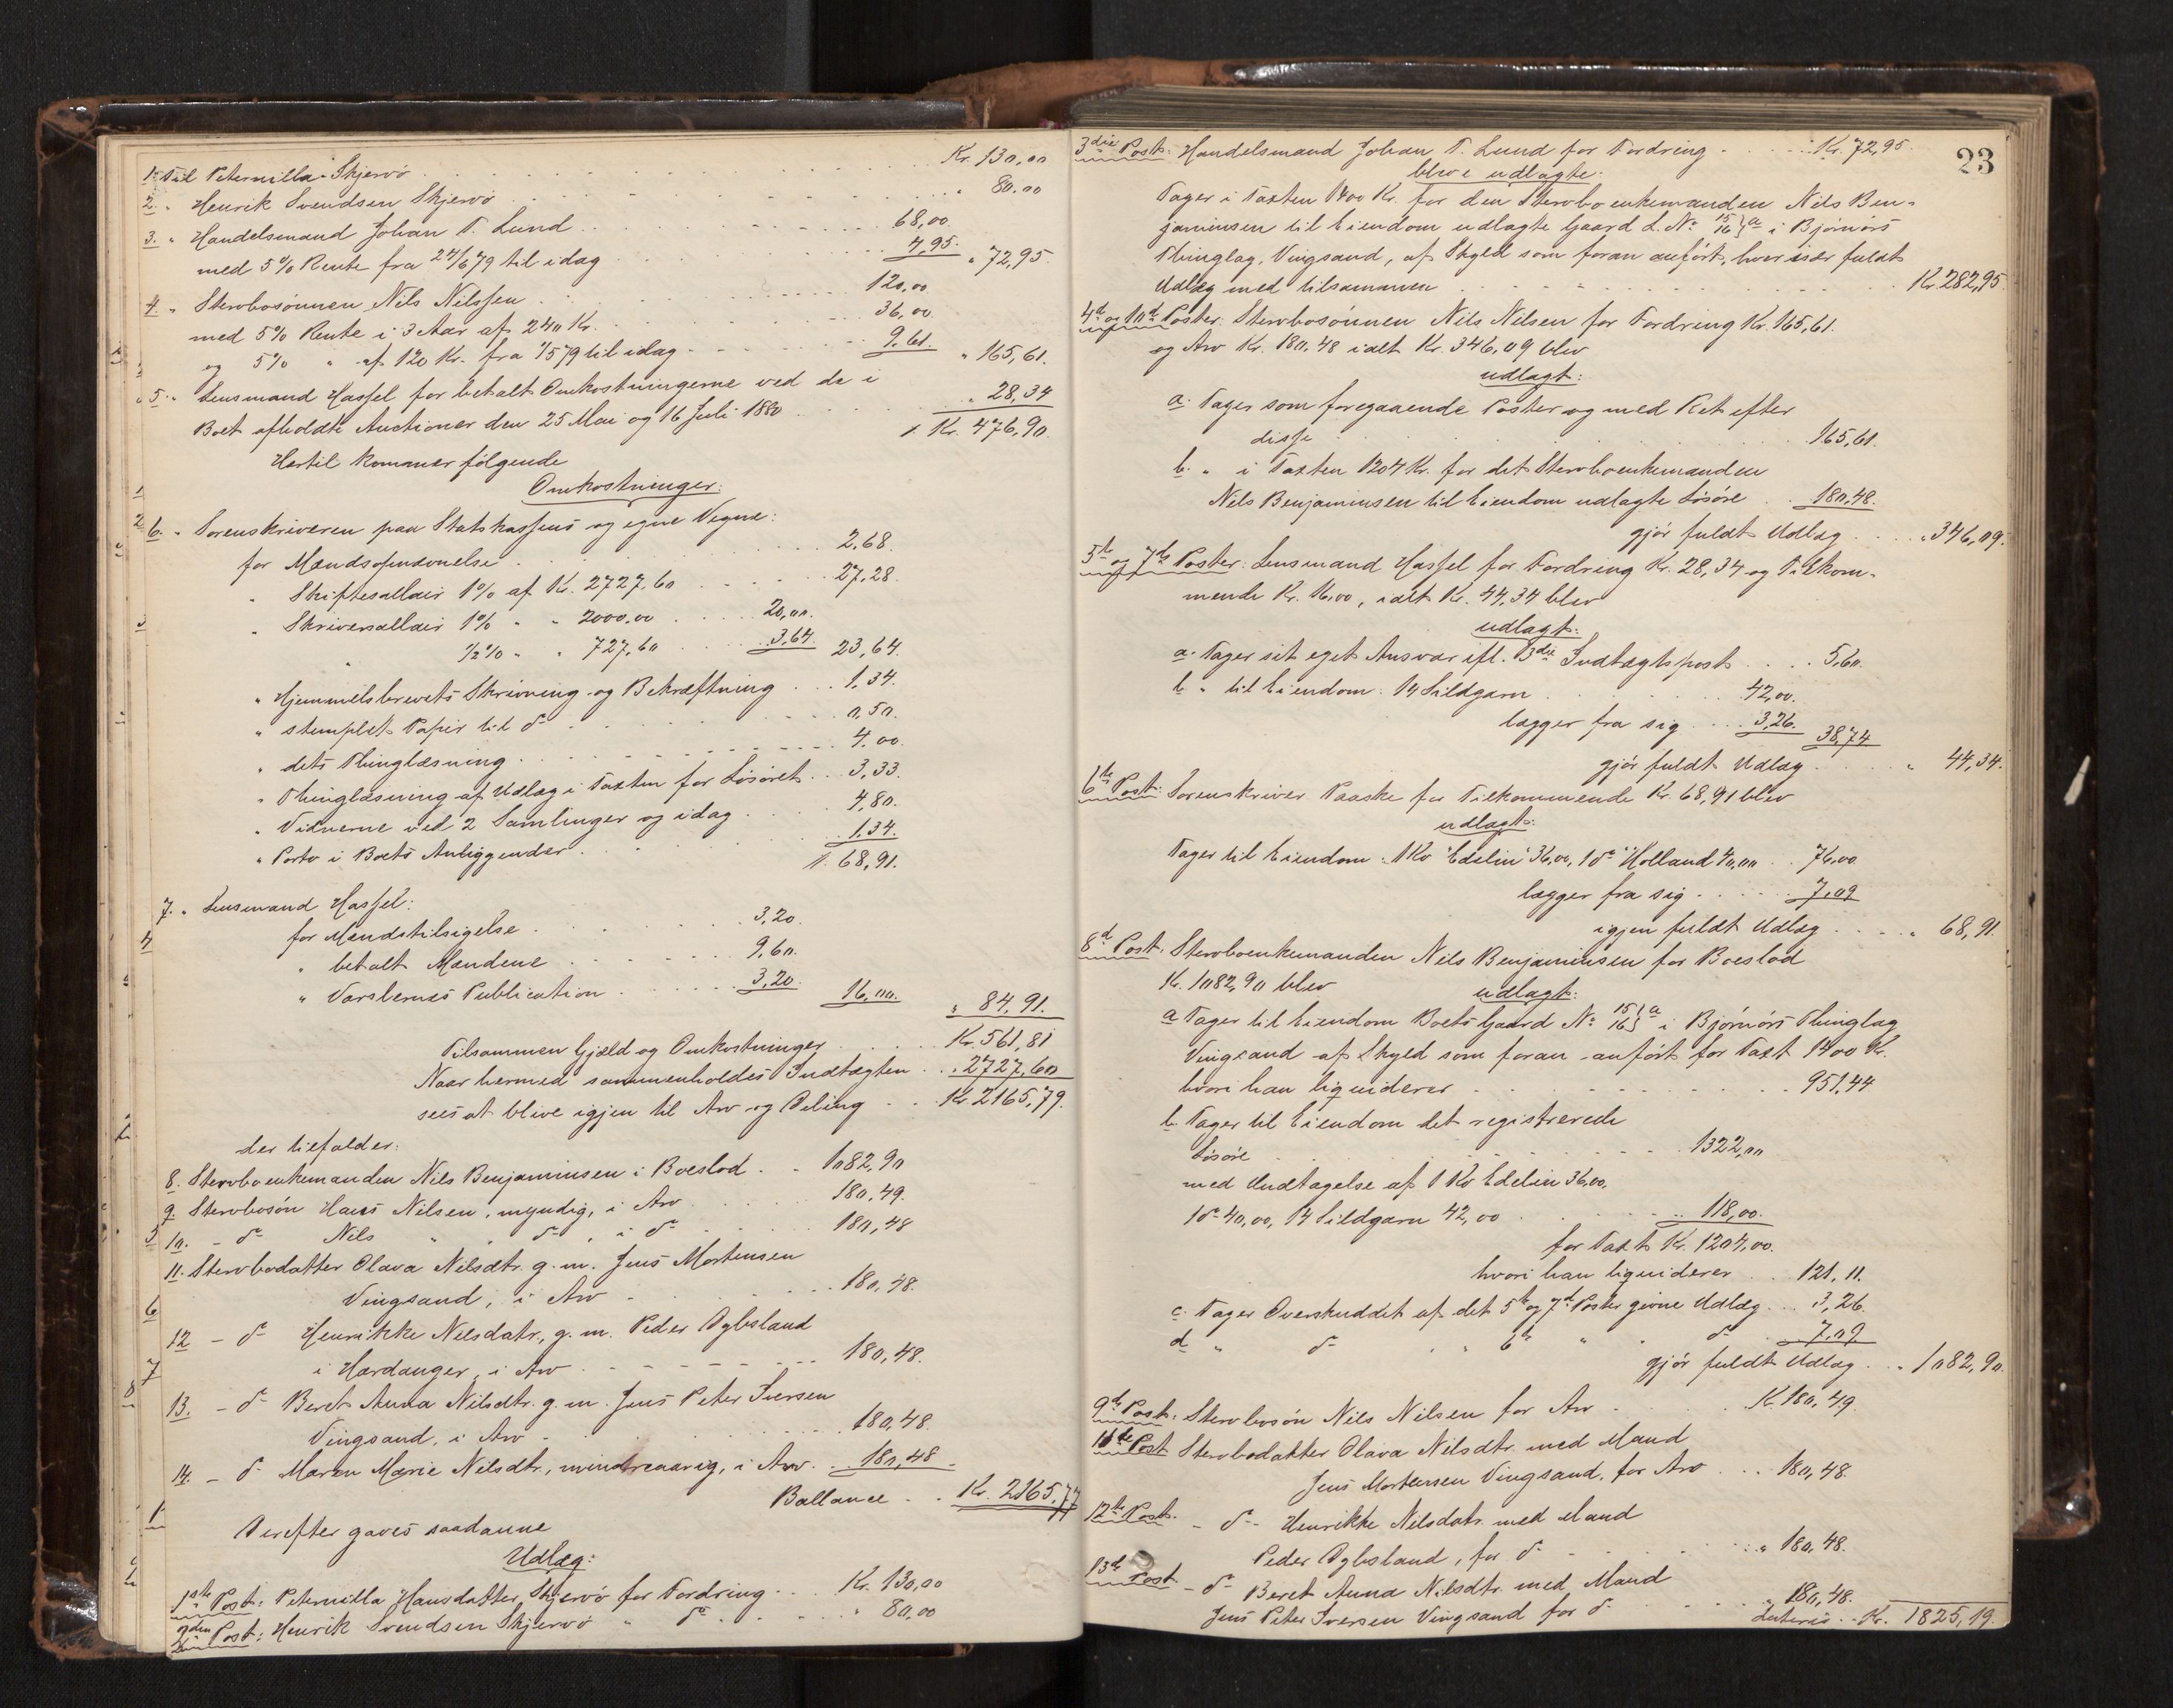 1. Til Peternilla Skjervö . . . Kr. 130,00
2. " Henrik Svendsen Skjervö . . . " 80.00
3. " Handelsmand Johan T. Lund . . . 68,00
med 5% Rente fra 24/6 79 til idag . . . 4,95. " 72,95
4. " Stervbosönnen Nils Nilssen . . . 120,00
med 5% Rente i 3 Aar af 240 Kr. . . . 36,00.
og 5% " af 120 Kr. fra 1/5 79 til idag . . . 9,61. " 165,61.
5. " Lensmand Hassel for betalt Omkostningerne ved de i
Boet afholdte Auctioner den 25 Mai og 16 Juli 1880 . . . " 28,34
/. Kr. 476,90.
Hertil kommer fölgende
Omkostninger:
6. " Sorenskriveren paa Statskassens og egne Vegne:
for Mændsopnævnelse . . . 2,68.
" Skiftesallair 1% af Kr. 2727,60 . . . 27,28.
" Skriversallair 1% " " 2000,00 . . . 20,00.
" 1/2% " " 727,60 . . . 3,64. 23,64.
" Hjemmelsbrevets Skrivning og Bekræftning . . . 1,34.
" stemplet Papir til do . . . 0,50.
" dets Thinglæsning . . . 4,00.
" Thinglæsning af Udlæg i Taxten for Lösöret . . 3,33.
" Vidnerne ved 2 Samlinger og idag . . . 4,80.
" Porto i Boets Anliggender . . . 1,34.
/. 68,91.
7. " Lensmand Hassel:
for Mændstilsigelse . . . 3,20.
" betalt Mændene . . . 9,60.
" Varslernes Publication . . . 3,20. 16,00. " 84,91.
Tilsammen Gjæld og Omkostninger . . . Kr. 561,81
Naar hermed sammenholdes Indtægten . . " 2727,60
sees at blive igjen til Arv og Deling . . Kr. 2165,79.
der tilfalder:
8. Stervboenkemanden Nils Benjaminsen i Boeslod . . 1082,90
9. Stervbosön Hans Nilsen, myndig, i Arv . . . 180,49.
10. - do Nils " " do, i do . . . 180,48
11. Stervbodatter Olava Nilsdtr. g. m. Jens Mortensen
Vingsand, i Arv . . . 180,48.
12 - do Henrikke Nilsdatr., g. m. Peder Ogbsland
i Hardanger, i Arv . . . 180,48.
13. - do Beret Anna Nilsdtr. g. m. Jens Peter Iversen
Vingsand, i Arv . . . 180,48.
14. - do Maren Marie Nilsdtr., mindreaarig, i Arv . . 180,48
Ballance . . Kr. 2165,77
Derefter gaves saadanne
Udlæg:
1ste Post: Peternilla Hansdatter Skjervö for Fordring . . Kr. 130,00
2den Post: Henrik Svendsen Skjervö " do . . . " 80,00
23
3die Post: Handelsmand Johan T. Lund for Fordring . . . Kr. 72,95.
blev udlagte:
Tager i Taxten 1400 Kr. for den Stervboenkemanden Nils Ben-
jaminsen til Eiendom udlagte Gaard L. No 15 16 } a i Bjørnørs
Thinglag, Vingsand, af Skyld som foran anfört, hver især fuldt
Udlæg med tilsammen . . . Kr. 282,95.
4de og 10de Poster: Stervbosönnen Nils Nilsen for Fordring Kr. 165,61.
og Arv Kr. 180,48 ialt Kr. 346,09 blev
udlagt:
a. Tager som foregaaende Poster og med Ret efter
disse . . . 165,61.
b. " i Taxten 1204 Kr. for det Stervboenkemanden
Nils Benjaminsen til Eiendom udlagte Lösöre . . 180,48.
gjör fuldt Udlæg . . . " 346,09.
5te og 7de Poster: Lensmand Hassel for Fordring Kr. 28,34 og Tilkom-
mende Kr. 16,00, ialt Kr. 44,34 blev
udlagt:
a. Tager sit eget Ansvar ifl. 3die Indtægtspost . . . 5,60.
b. " til Eiendom: 14 Sildgarn . . . 42,00.
lægger fra sig . . . 3,26. 38,74
gjör fuldt Udlæg . . . " 44,34.
6te Post: Sorenskriver Paaske for Tilkommende Kr. 68,91 blev
udlagt:
Tager til Eiendom: 1 Ko "Edelin" 36,00, 1 do "Holland" 40,00 . . 76,00
lægger fra sig . . . 7,09
igjen fuldt Udlæg . . . " 68,91.
8de Post: Stervboenkemanden Nils Benjaminsen for Boeslod
Kr. 1082,90 blev udlagt:
a Tager til Eiendom Boets Gaard No 15 16 } a i Bjørnørs Thinglag
Vingsand af Skyld som foran anfört for Taxt 1400 Kr.
hvori han liquiderer . . . 951,44
b. Tager til Eiendom det registrerede
Lösöre . . . 1322,00
med Undtagelse af 1 Ko Edelin 36,00,
1 do 40,00, 14 Sildgarn 42,00 . . . 118,00.
for Taxt Kr. 1204,00.
hvori han liquiderer . . 121,11.
c. Tager Overskuddet af det 5te og 7de Poster givne Udlæg . . 3,26.
d " do " " 6te " " do . 7,09
gjör fuldt Udlæg . . " 1082,90.
9de Post: Stervbosön Nils Nilsen for Arv . . . K. 180,49.
11te Post Stervbodatter Olava Nilsdtr. med Mand
Jens Mortensen Vingsand, for Arv . . . 180,48.
12te Post. - do - Henrikke Nilsdatr. med Mand
Peder Ogbsland, for do . . . " 180,48.
13de Post - do - Beret Anna Nilsdtr. med Mand
Jens Peter Iversen Vingsand for do . . . " 180,48.
Lateris . . Kr. 1825,19.